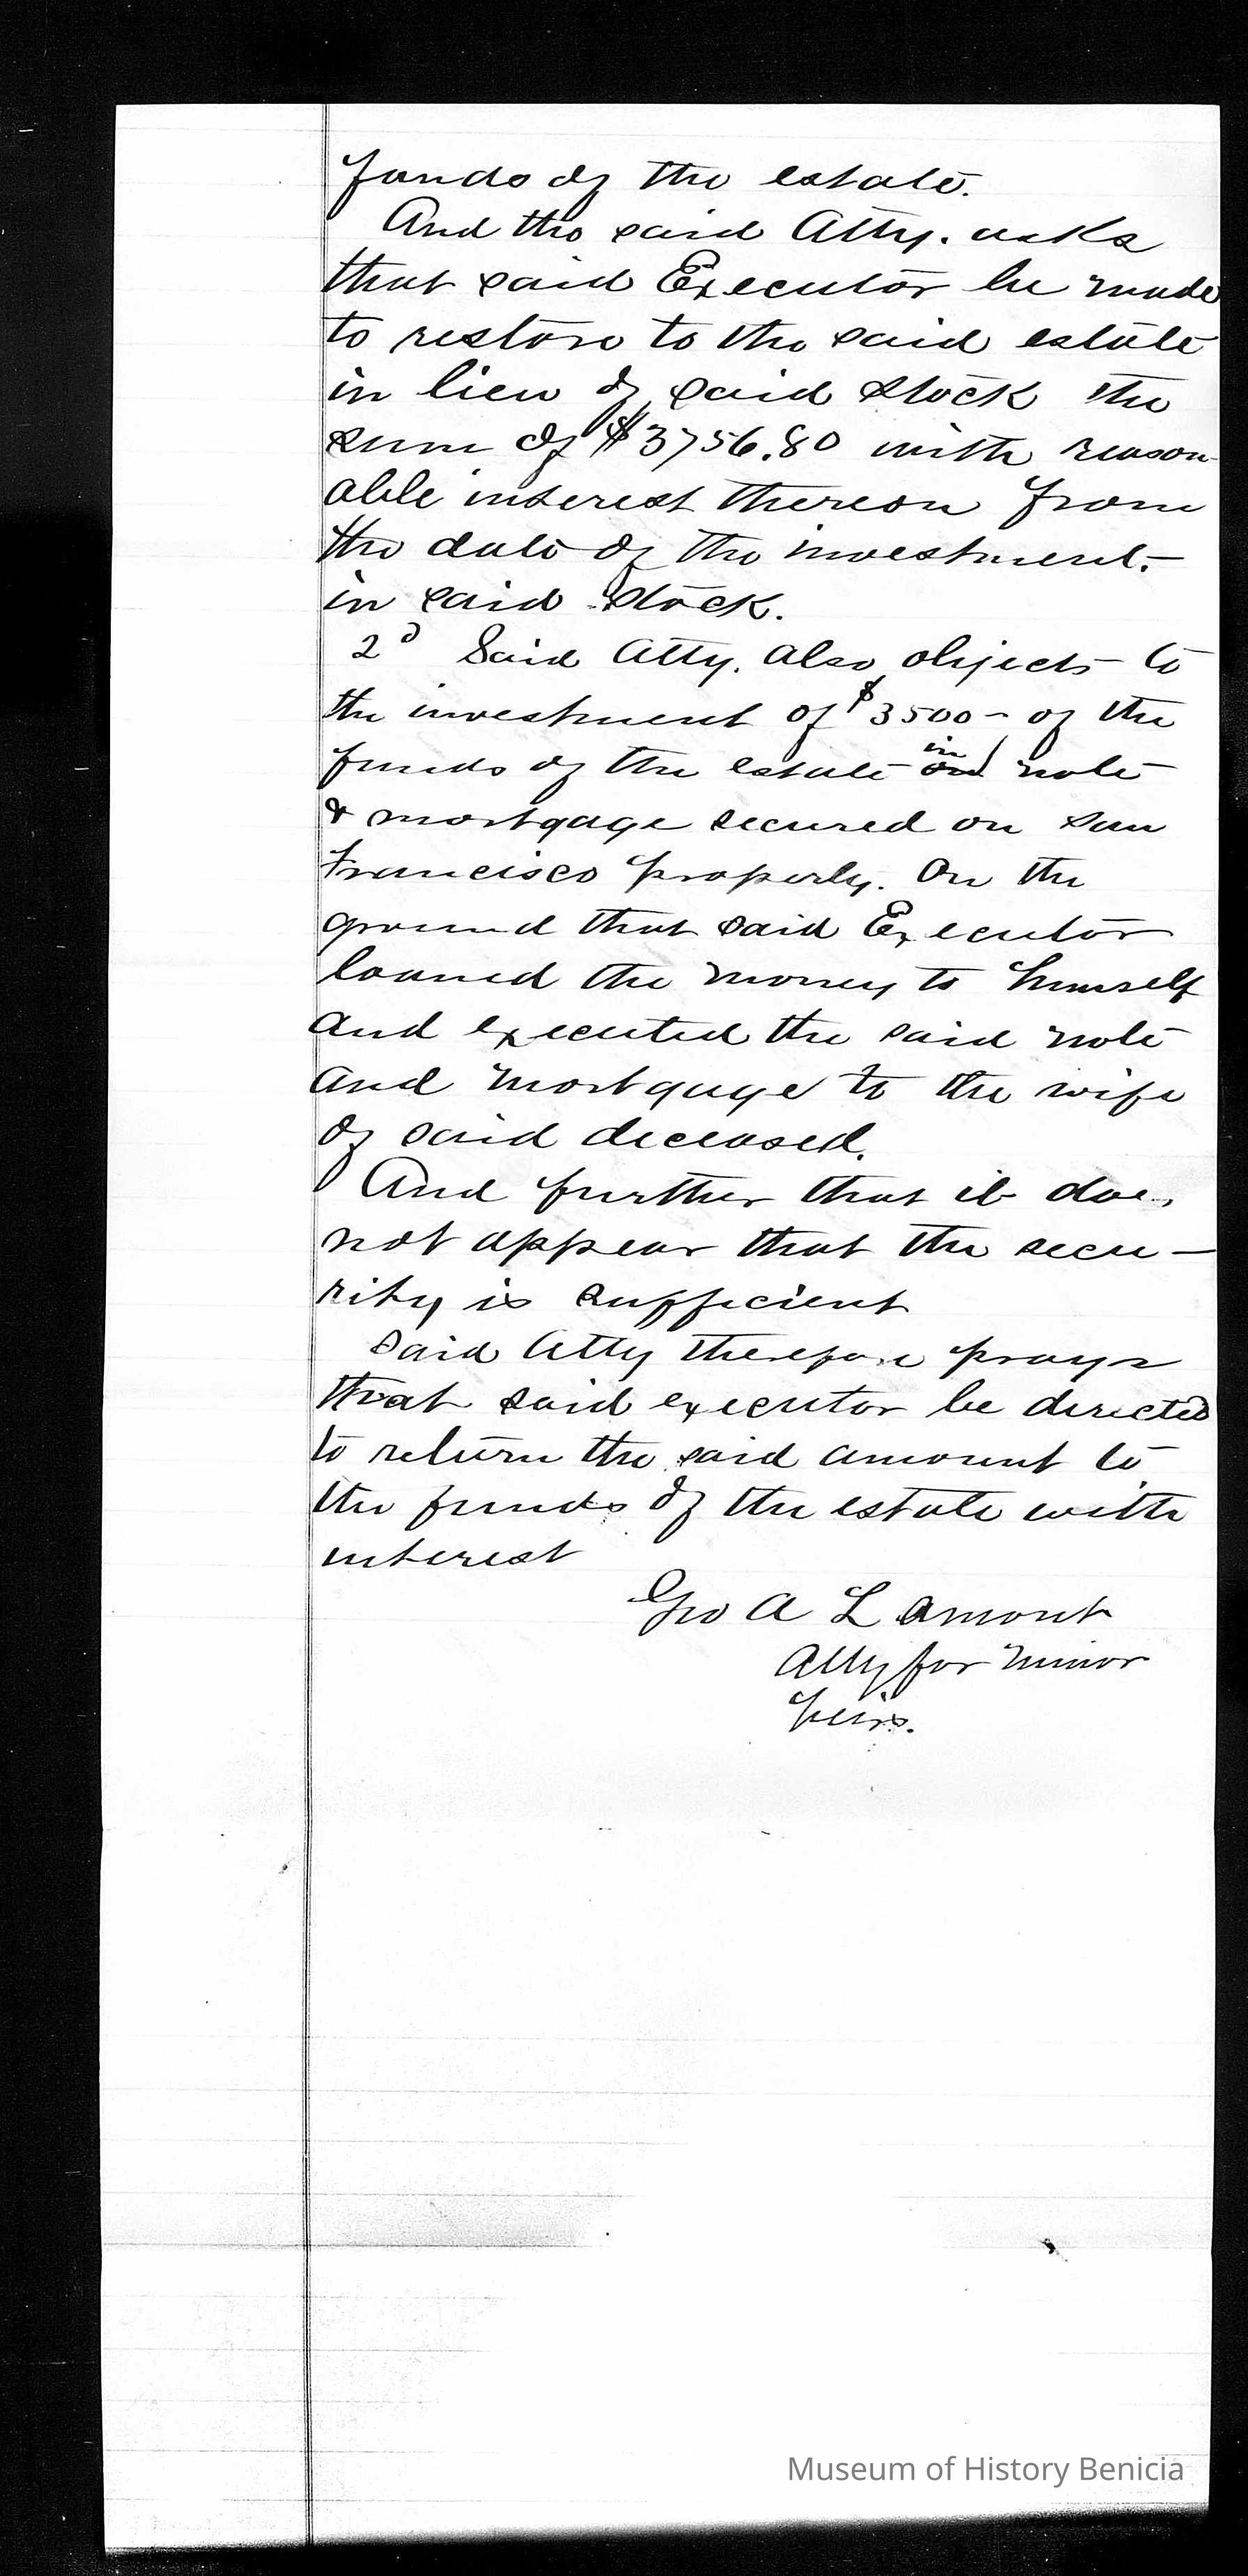 funds of the estate.
And the said Atty. asks
that said Executor be made
to restore to the said estate
in lieu of said stock the
sum of $3756.80 with reason-
able interest thereon from
the date of the investment
in said stock.
2d Said Atty. also objects to
the investment of $3500- of the
funds of the estate in note
& mortgage secured on San
Francisco property. On the
ground that said Executor
loaned the money to himself
and executed the said note
and mortgage to the wife
of said deceased.
And further that it does
not appear that the secu-
rity is sufficient
Said Atty therefore prays
that said executor be directed
to return the said amount to
the funds of the estate with
interest
Geo A Lamont
Atty for minor
heirs.
Museum of History Benicia